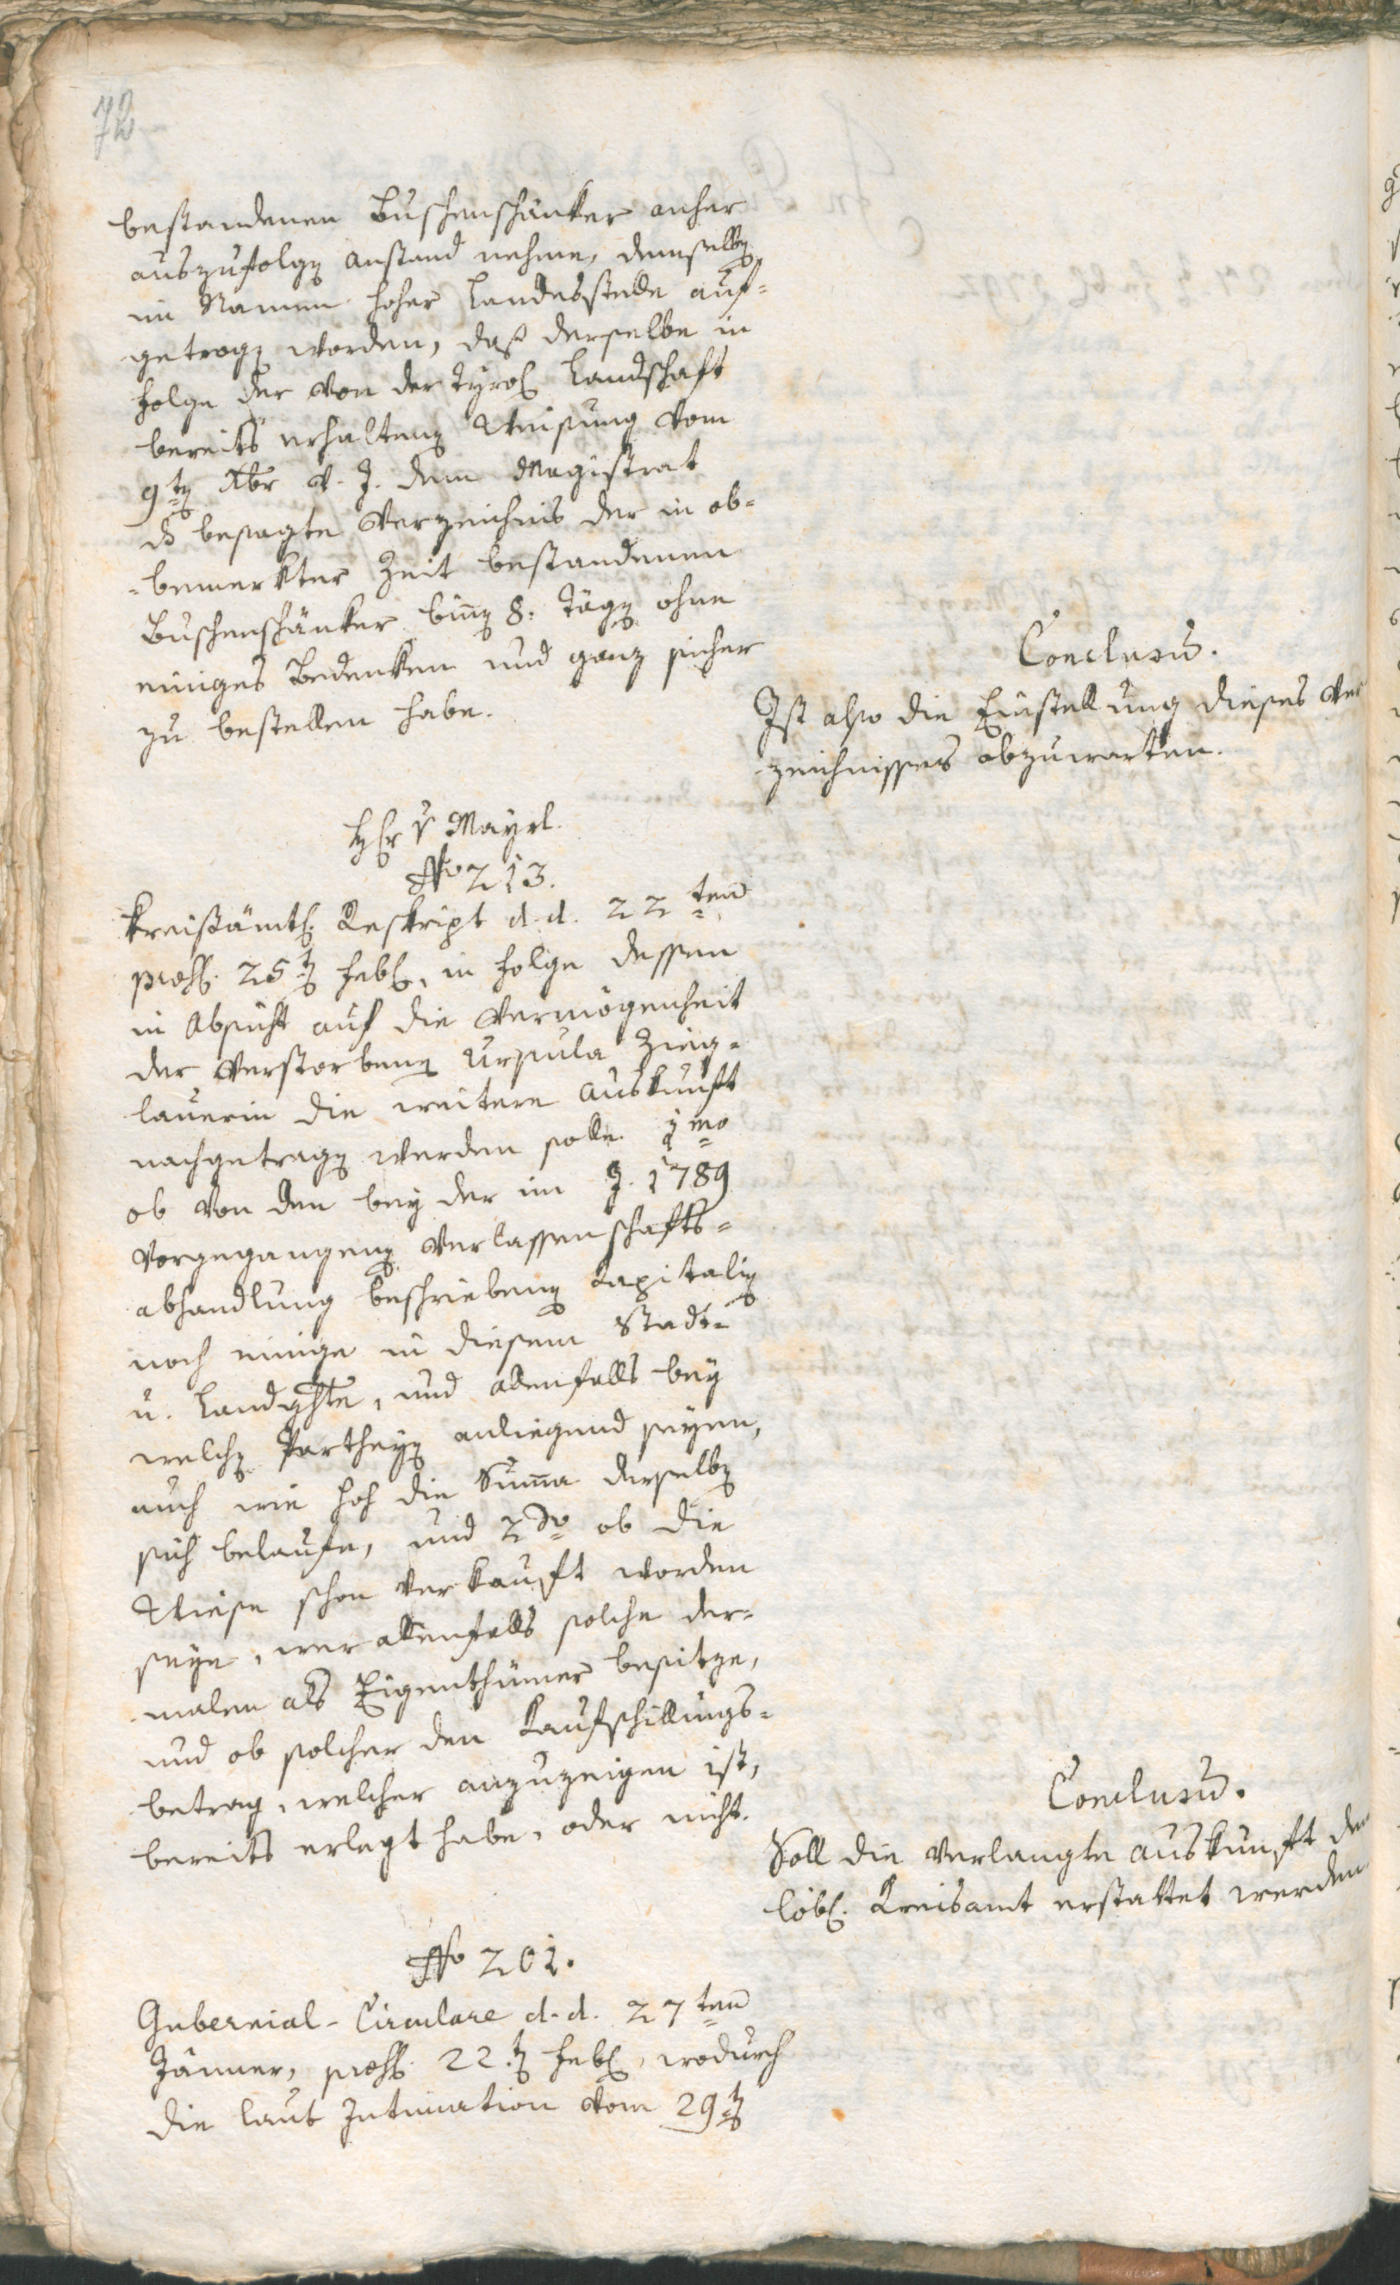 72
bestandenen Buschenschänker anher
auszufolgen anstand nehme, demselben
im Namen hoher Landesstelle auf-
getragen worden, daß derselbe in
Folge der von der Tyrol. Landschaft
bereits erhaltenen Weisung vom
9ten Xbr v. J. dem Magistrat
besagte Verzeichnis der in ob-
-bemerkter Zeit bestandenen
Buschenschänker binnen 8. Tägen ohne
einiges Bedenken und ganz sicher
zu bestellen habe.
Conclusum.
Ist also die Einstellung dieses Ver
zeichnisses abzuwarten.
Hr v Mayrl.
No 213.
Kreisämtl. Reskript d. d. 22ten
praes. 25ten Febr. in Folge dessen
in Absicht auf die Vermögenheit
der verstorbenen Ursula Zieg-
lauerin die weitere Auskunft
nachgetragen werden solle. 1mo
ob von den bey der im J. 1789
vorgegangenen Verlassenschafts-
abhandlung beschriebenen Kapitalien
noch einige in diesem Stadt-
u. Landghte, und allenfalls bey
welchen Partheyen anliegend seyen,
auch wie hoch die Summa derselben
sich belaufe, und 2do ob die
Wiese schon verkauft worden
seye, wer allenfalls solche der-
malen als Eigenthümer besitze,
und ob solcher den Kaufschillings-
betrag, welcher anzuzeigen ist,
bereits erlegt habe, oder nicht.
Conclusum.
Soll die verlangte Auskunft dem
löbl. Kreisamt erstattet werden.
No 201.
Gubernial-Circulare d. d. 27ten
Jänner, praes. 22ten Febr. wodurch
die laut Intimation vom 29ten